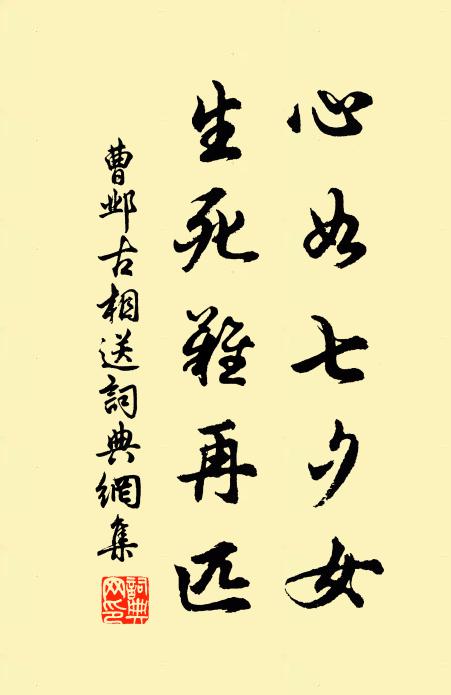 心如七夕女
生死難再匹
曹邺古相送詞典網集
詞典网印